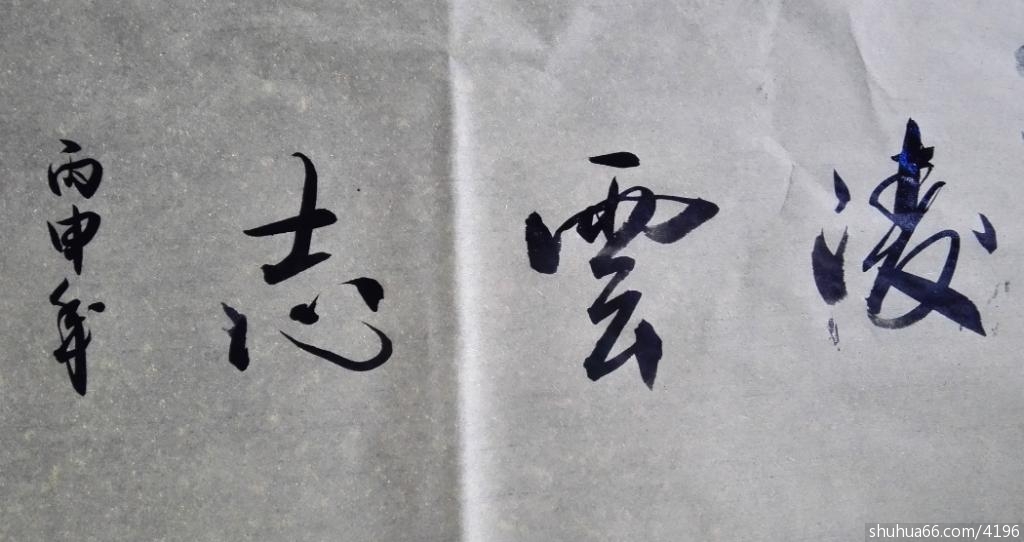 凌雲志
丙申年
shuhua66.com/4196